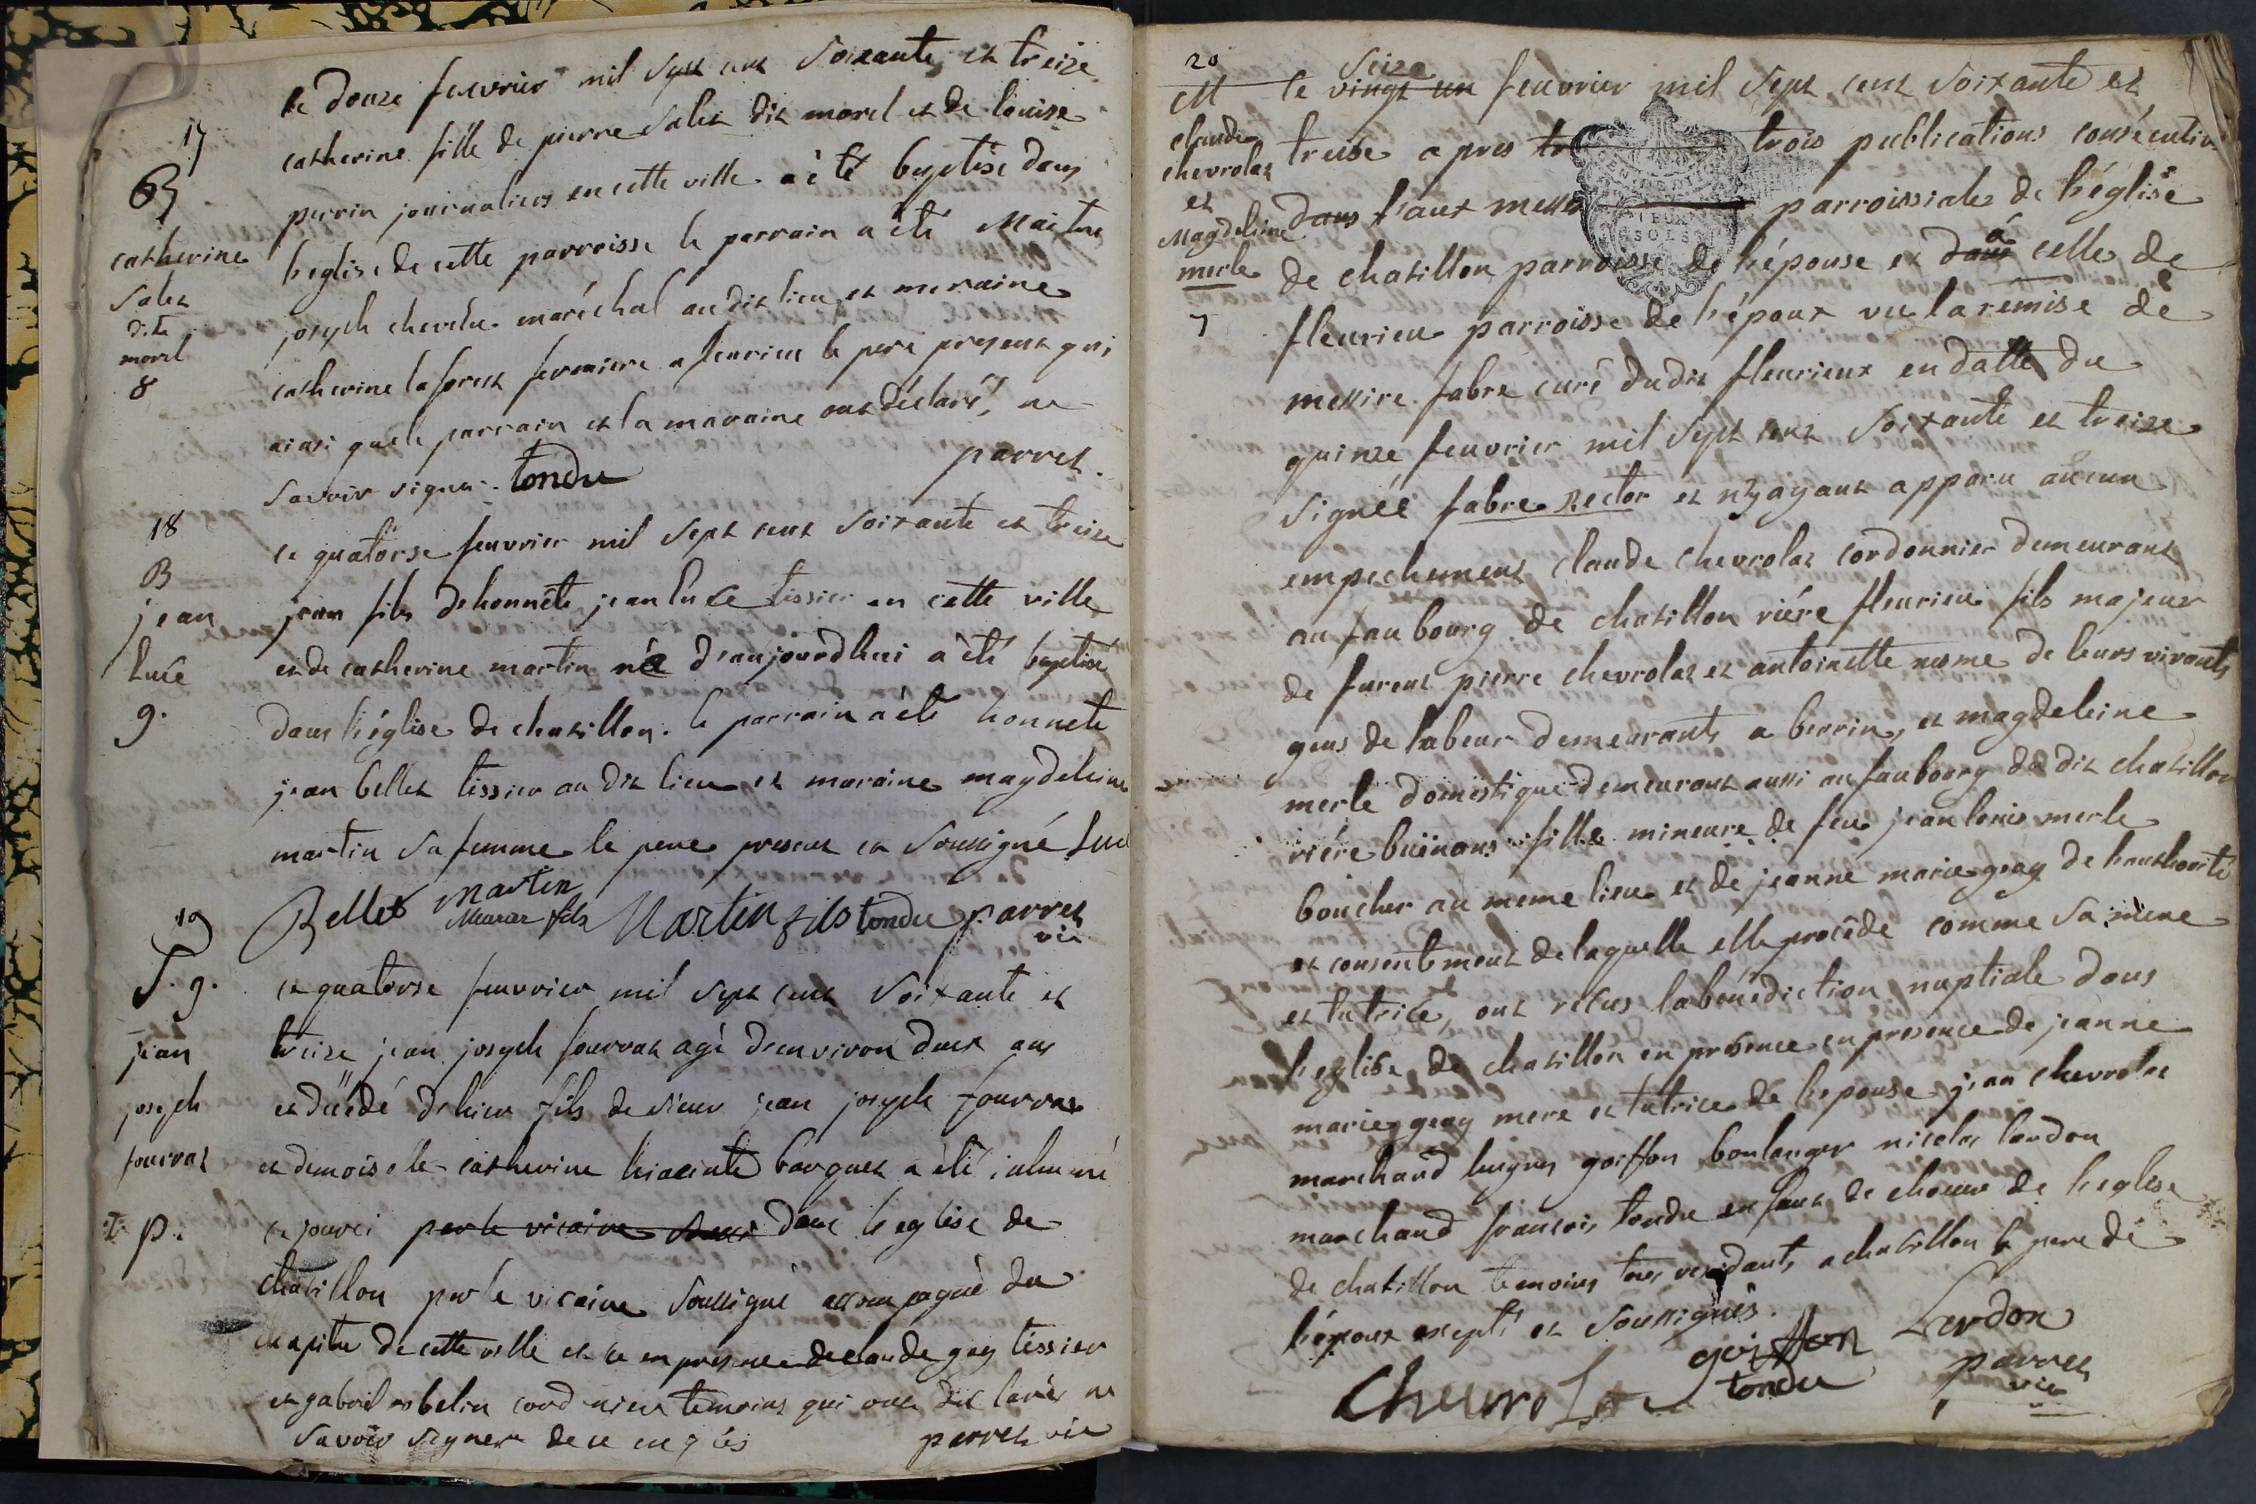 17
B
catherine
Salet
dite
morel
8
le douze feuvrier mil sept cent soixante et treize
catherine fille de pierre Salet dit morel et de louise
perrin journaliers en cette ville a été baptisé dans
l'eglise de cette parroisse le parrain a été Maitre
joseph chevelu maréchal au dit lieu et meraine
catherine laforest fermiere a fleurieu le pere present qui
ainsi que le parrain et la maraine ont déclaré, ne
savoir signer. tondu parret.
18
B
jean
luce
9.
le quatorse feuvrier mil sept cent soixante et treize
jean fils de honnête jean luce tissier en cette ville
et de catherine martin né d'aujourdhui a été baptisé
dans l'église de chatillon. le parrain a été honnete
jean bellet tissier au dit lieu et maraine magdeleine
martin sa femme le pere present et soussigné Luce
Bellet Martin fils Martin fils tondu parret
vic
19
S. 9.
jean
joseph
fourrat
P.
le quatorse feuvrier mil sept cent soixante et
treize jean joseph fourrat agé d'environ deux ans
et décédé d'hier fils de sieur jean joseph fourrat
et demoiselle catherine hiacinte barquet a été inhumé
ce jourci par le vicaire dans l'eglise de
chatillon par le vicaire soussigné accompagné du
chapitre de cette ville et ce en presence de claude guy tissier
et gabriel robelin cordonnier temoins qui ont déclarés ne
savoir signer de ce enquis parret vic
20
M
claude
chevrolat
et
Magdeleine
merle
7
seize
le vingt un feuvrier mil sept cent soixante et
treise apres tr trois publications consécutives
dans faux messes parroissiales de l'église
à
de chatillon parroisse de l'épouse et dans celle de
fleurieu parroisse de l'époux vu la remise de
messire fabre curé dudit fleurieux en datte du
quinze feuvrier mil sept cent soixante et treize
signée fabre Rector et n'y ayant apparu aucun
empechement claude chevrolat cordonnier demeurant
au faubourg de chatillon riére fleurieu fils majeur
de furent pierre chevrolat et antoinette nesme de leurs vivants
gens de labeur demeurants a berrin, et magdeleine
merle domestique demeurant aussi au faubourg du dit chatillon
riére buënans fille mineure de feu jean louis merle
boucher au meme lieu et de jeanne marie geay de l'authorité
et consentement de laquelle elle procéde comme sa mere
et tutrice, ont reçus la bénédiction nuptiale dans
l'eglise de chatillon en présence en présence de jeanne
marie geay mere et tutrice de l'epouse jean chevrolat
marchand hugues goiffon boulanger nicolas lardon
marchand francois tondu enfant de choeur de l'eglise
de chatillon temoins tous residants a chatillon le pere de
l'époux excepté et soussignés.
Chevrolat goiffon Lardon
tondu parret
vic